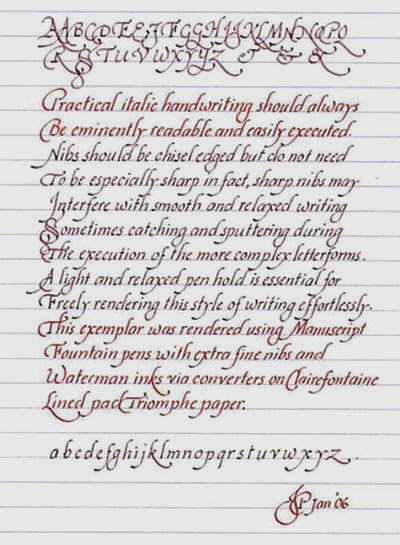 AABCDEEJFGGHIJKLMNNOPQ
RSTUVWXYYZ & & &
Practical italic handwriting should always
Be eminently readable and easily executed.
Nibs should be chisel edged but do not need
To be especially sharp in fact, sharp nibs may
Interfere with smooth and relaxed writing
Sometimes catching and sputtering during
The execution of the more complex letterforms.
A light and relaxed pen hold is essential for
Freely rendering this style of writing effortlessly.
This exemplar was rendered using Manuscript
Fountain pens with extra fine nibs and
Waterman inks via converters on Clairefontaine
Lined pad Triomphe paper.
abcdefghijklmnopqrstuvwxyz.
Jan '06